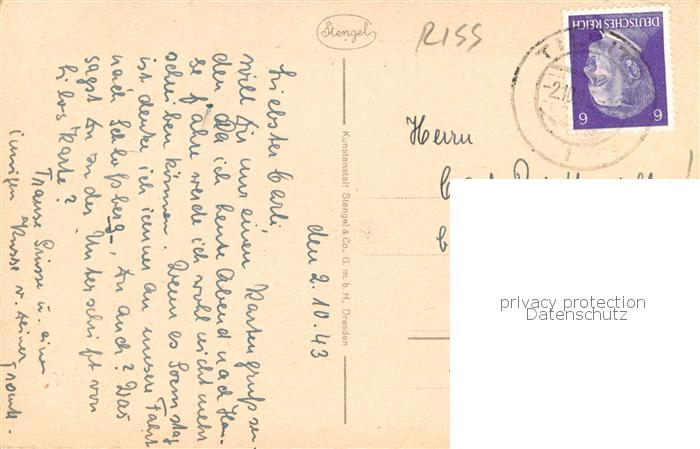 Stengel
RISS
DEUTSCHES REICH
6 6
-2.10.
Herrn
Kunstanstalt Stengel & Co. G. m. b. H., Dresden
den 2.10.43
Liebster Carli,
will dir nur einen Kartengruß sen-
den da ich heute Abend nach Hau-
se fahre werde ich wohl nicht mehr
schreiben können. Wenn es Samstag
ist denke ich immer an unsere Fahrt
nach Schloßberg, Du auch? Was
sagst Du zu der Unterschrift von
Karte?
Grüsse u. einen
innigen Kuss v. deiner
privacy protection
Datenschutz